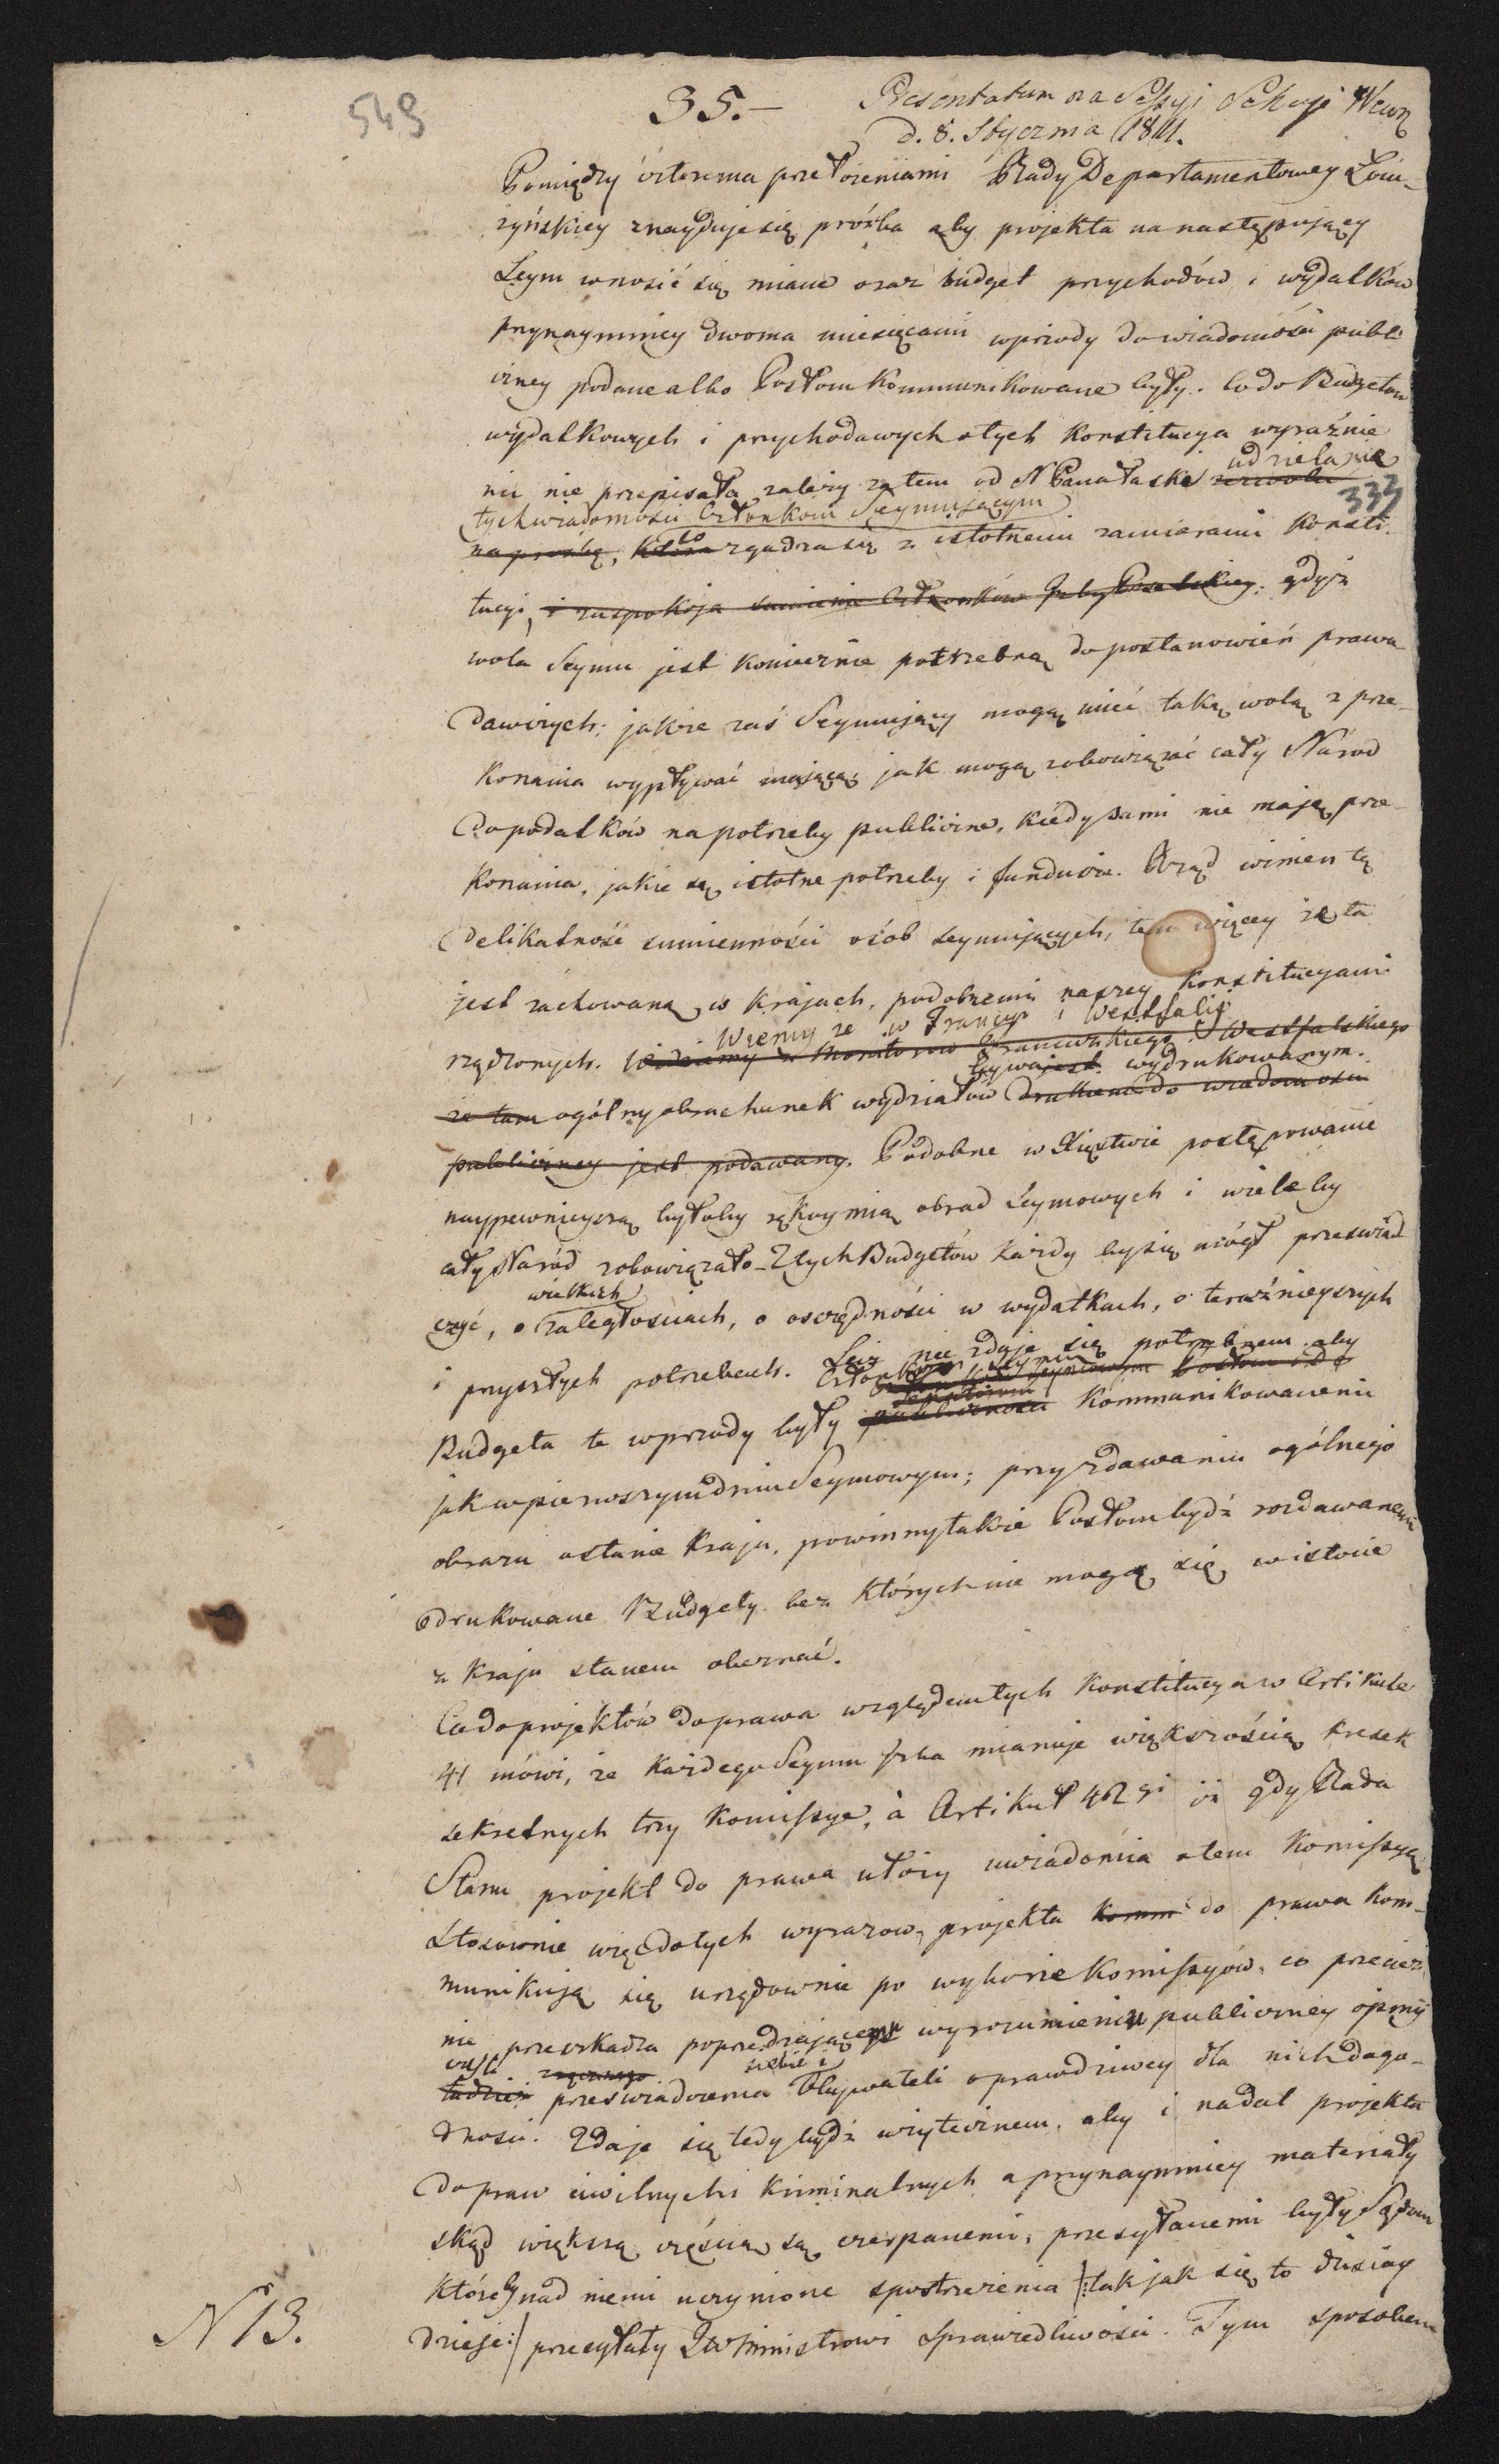 549
35.–
Presentatum na Sessyi Sekcyi Wewn
d. 8. Stycznia 1811.
Pomiędzy czterema przełożeniami Rady Departamentowey Łom-
żyńskiey znayduje się próźba aby projekta na następujący
Seym wnosić się miane oraz budget przychodów i wydatków
przynaymniey dwoma miesięcami wprzody do wiadomości publi
czney podane albo Posłom kommunikowane były. Co do Budżetów
wydatkowych i przychodowych o tych Konstitucya wyraźnie
nic nie przepisała, zależy zatem od N Pana łaski udzielanie
333
tych wiadomości Członkom Seymującym
na prośbę, która co zgadza się z istotnemi zamiarami Konsti
tucyi, i zaspokoja sumienie Członków Izby Poselskiey. gdyż
wola Seymu jest koniecznie potrzebną do postanowień prawo
dawczych; jakże zaś Seymujący mogą mieć taką wolą z prze-
konania wypływać mającą jak mogą zobowiązać cały Naród
do podatków na potrzeby publiczne, kiedy sami nie mają prze-
konania, jakie są istotne potrzeby i fundusze. Rząd winien tę
delikatność sumienności osób seymujących, tem więcey że ta
jest zachowaną w krajach, podobnemi naszey konstitucyami
Wiemy że w Francyi i Westfalii
rządzonych. Widziemy z Monitorów Francuzkiego i Westfalskiego
bywa jest wydrukowanym.
że tam ogólny obrachunek wydziałów drukiem do wiadomości
publiczney jest podawany. Podobne w Xięstwie postępowanie
naypewnieyszą byłoby rękoymią obrad Seymowych i wieleby
cały Naród zobowiązało – Z tych Budgetów każdy by się mógł przeświad
wielkich
czyć, o zaległościach, o oszczędności w wydatkach, o teraźnieyszych
i przyszłych potrzebach. Lecz nie zdaje się potrzebnem aby
Członkom Seymu
Budgeta te wprzody były publiczności kommunikowanemi
jak w pierwszym dniu Seymowym; przy zdawaniu ogólnego
obrazu o stanie kraju, powinny takie Posłom bydź rozdawanemi
drukowane Budgety bez których nie mogą się w istocie
z kraju stanem obeznać.
Co do projektów do prawa względem tych Konstitucya w Artikule
41 mówi, że każdego Seymu Izba mianuje większością kresek
sekretnych trzy Komissye, à Artikuł 42gi iż gdy Rada
Stanu projekt do prawa ułoży uwiadomia o tem Komissyą
Stosownie więc do tych wyrazow, projekta komm do prawa kom-
munikują się urzędownie po wyborze Komissyów, co przecież
nie przeszkadza poprzedzającemu wyrozumieniu publiczney opinij
siebie i
tudzież przeświadczenia Obywateli o prawdziwey dla nich dogo-
dności. Zdaje się tedy bydź użytecznem, aby i nadal projekta
do praw cywilnych i kriminalnych a przynaymniey materiały
skąd większą częścią są czerpanemi, przesyłanemi były Sądom
któreby nad niemi uczynione spostrzeżenia /:tak jak się to dzisiay
dzieje:/ przesyłały JW Ministrowi Sprawiedliwości. Tym sposobem
N 13.